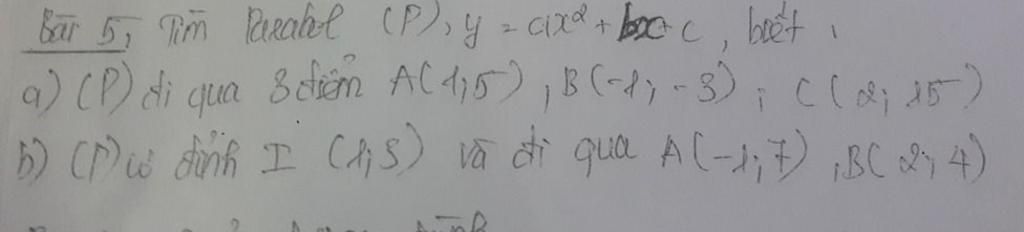 Bài 5, Tìm Parabol (P), y = ax² + bx + c, biết,
a) (P) đi qua 3 điểm A(1;5), B(-1;-3); C(2;15)
b) (P) có đỉnh I (1;3) và đi qua A(-1;7), B(2;4)